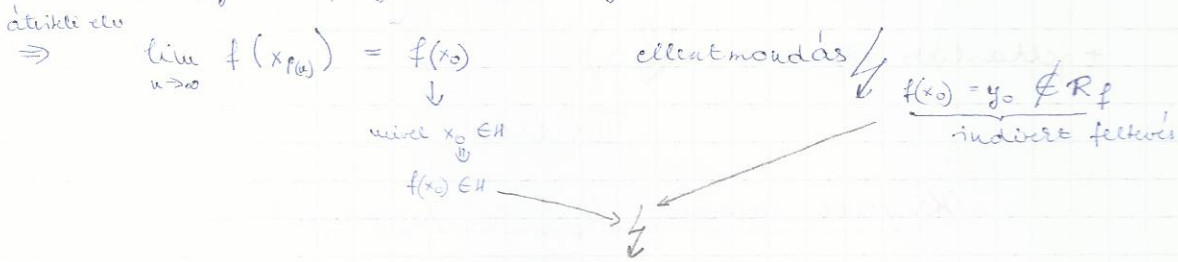 átviteli elv
⇒ lim f(x_{p(n)}) = f(x₀) ellentmondás ↯
n→∞
f(x₀) = y₀ ∉ R_f
indirekt feltevés
↓
mivel x₀ ∈ H
⇓
f(x₀) ∈ H
↯